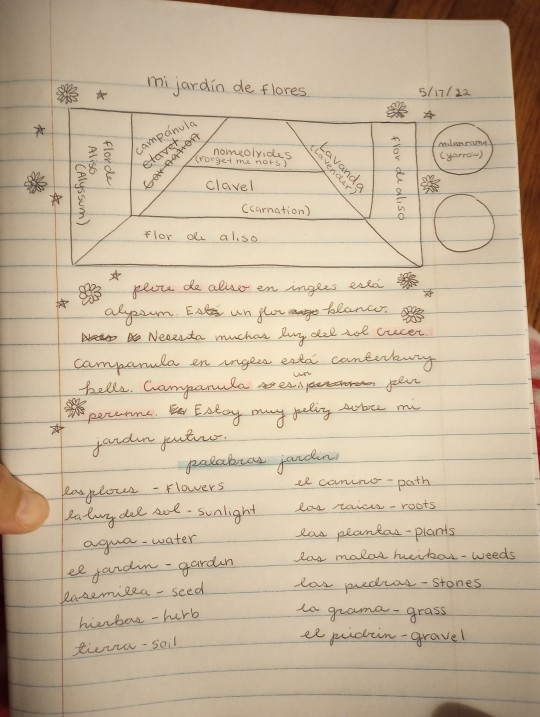 mi jardín de flores
5/17/22
flor de Aliso (Alyssum)
campánula
clavel
carnation
nomeolvides
(forget me nots)
Lavanda
(lavender)
flor de aliso
milenrame
(yarrow)
Clavel
(carnation)
flor de aliso
flore de aliso en ingles está
alypsum. Está un flor blanco.
Necesita muchas luz del sol crecer.
Campanula en ingles está canterbury
bells. Campanula es un flor
perenne. Estoy muy feliz sobre mi
jardin futuro.
palabras jardin
las flores - Flowers
la luz del sol - sunlight
agua - water
el jardin - garden
la semilla - seed
hierbas - herb
tierra - soil
el camino - path
las raices - roots
las plantas - plants
las malas hierbas - weeds
las piedras - stones
la grama - grass
el piedrin - gravel